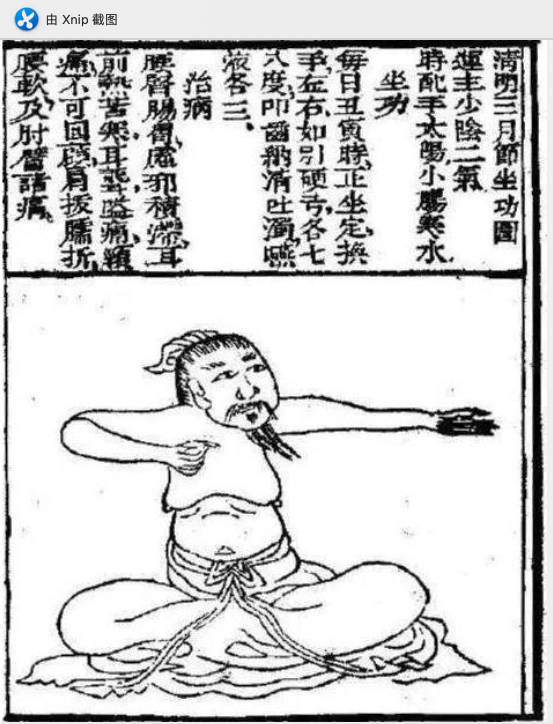 由 Xnip 截图
清明三月節坐功圖
運主少陰二氣
時配手太陽小腸寒水
坐功
每日丑寅時正坐定換
手左右如引硬弓各七
八度叩齒納清吐濁嚥
液各三、
治病
腰腎腸胃虛邪積滯耳
前熱苦寒耳聾嗌痛頸
痛不可回顧肩拔臑折
腰軟及肘臂諸痛